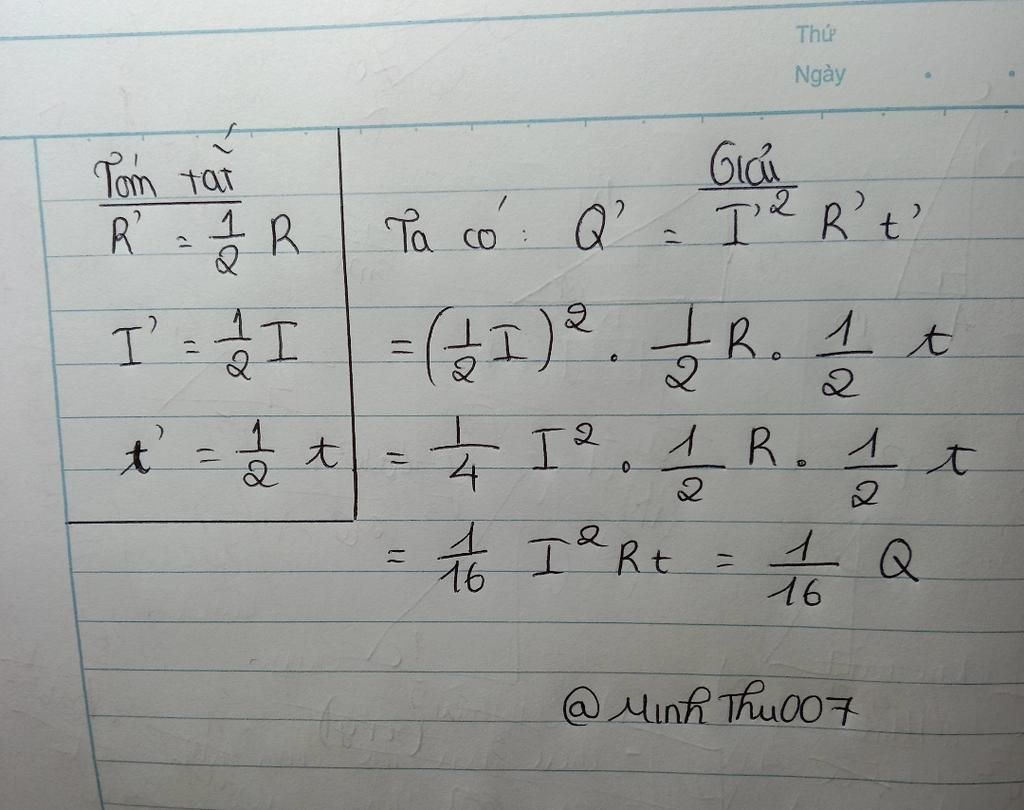 Thứ
Ngày
Tóm tắt
R' = 1/2 R
I' = 1/2 I
t' = 1/2 t
Giải
Ta có: Q' = I'² R' t'
= (1/2 I)² . 1/2 R . 1/2 t
= 1/4 I² . 1/2 R . 1/2 t
= 1/16 I² R t = 1/16 Q
@MinhThu007